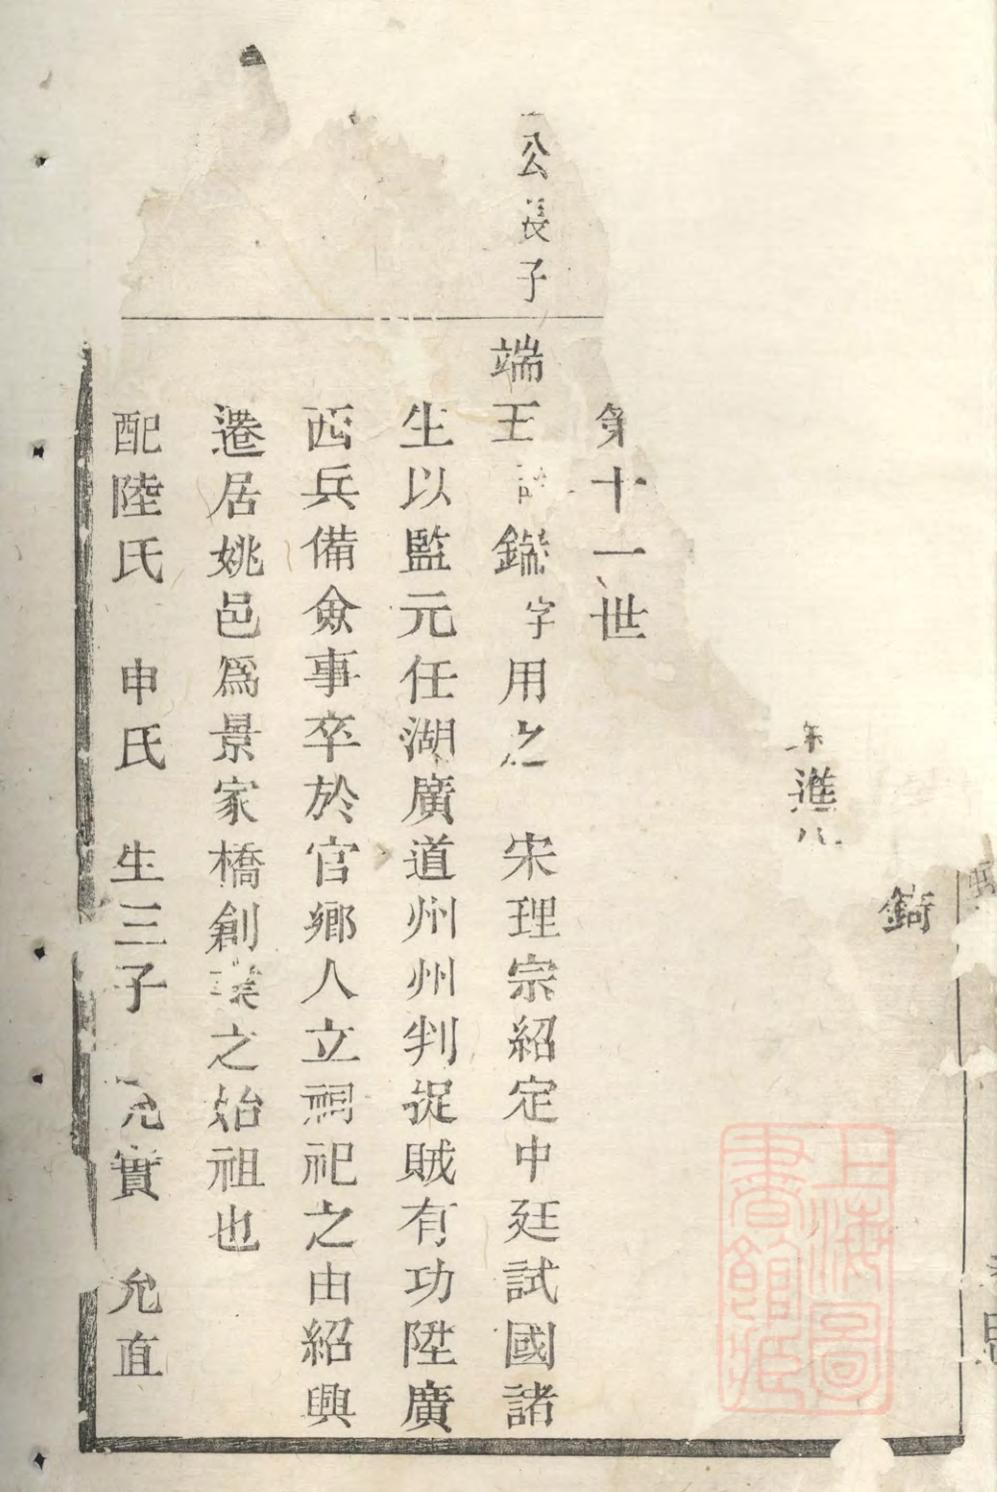 錡
進
上海圖書館藏
第十一世
公長子
端王鑑字用之 宋理宗紹定中廷試國諸
生以監元任湖廣道州州判捉賊有功陞廣
西兵備僉事卒於官鄉人立祠祀之由紹興
遷居姚邑爲景家橋創業之始祖也
配陸氏 申氏 生三子 允實 允直